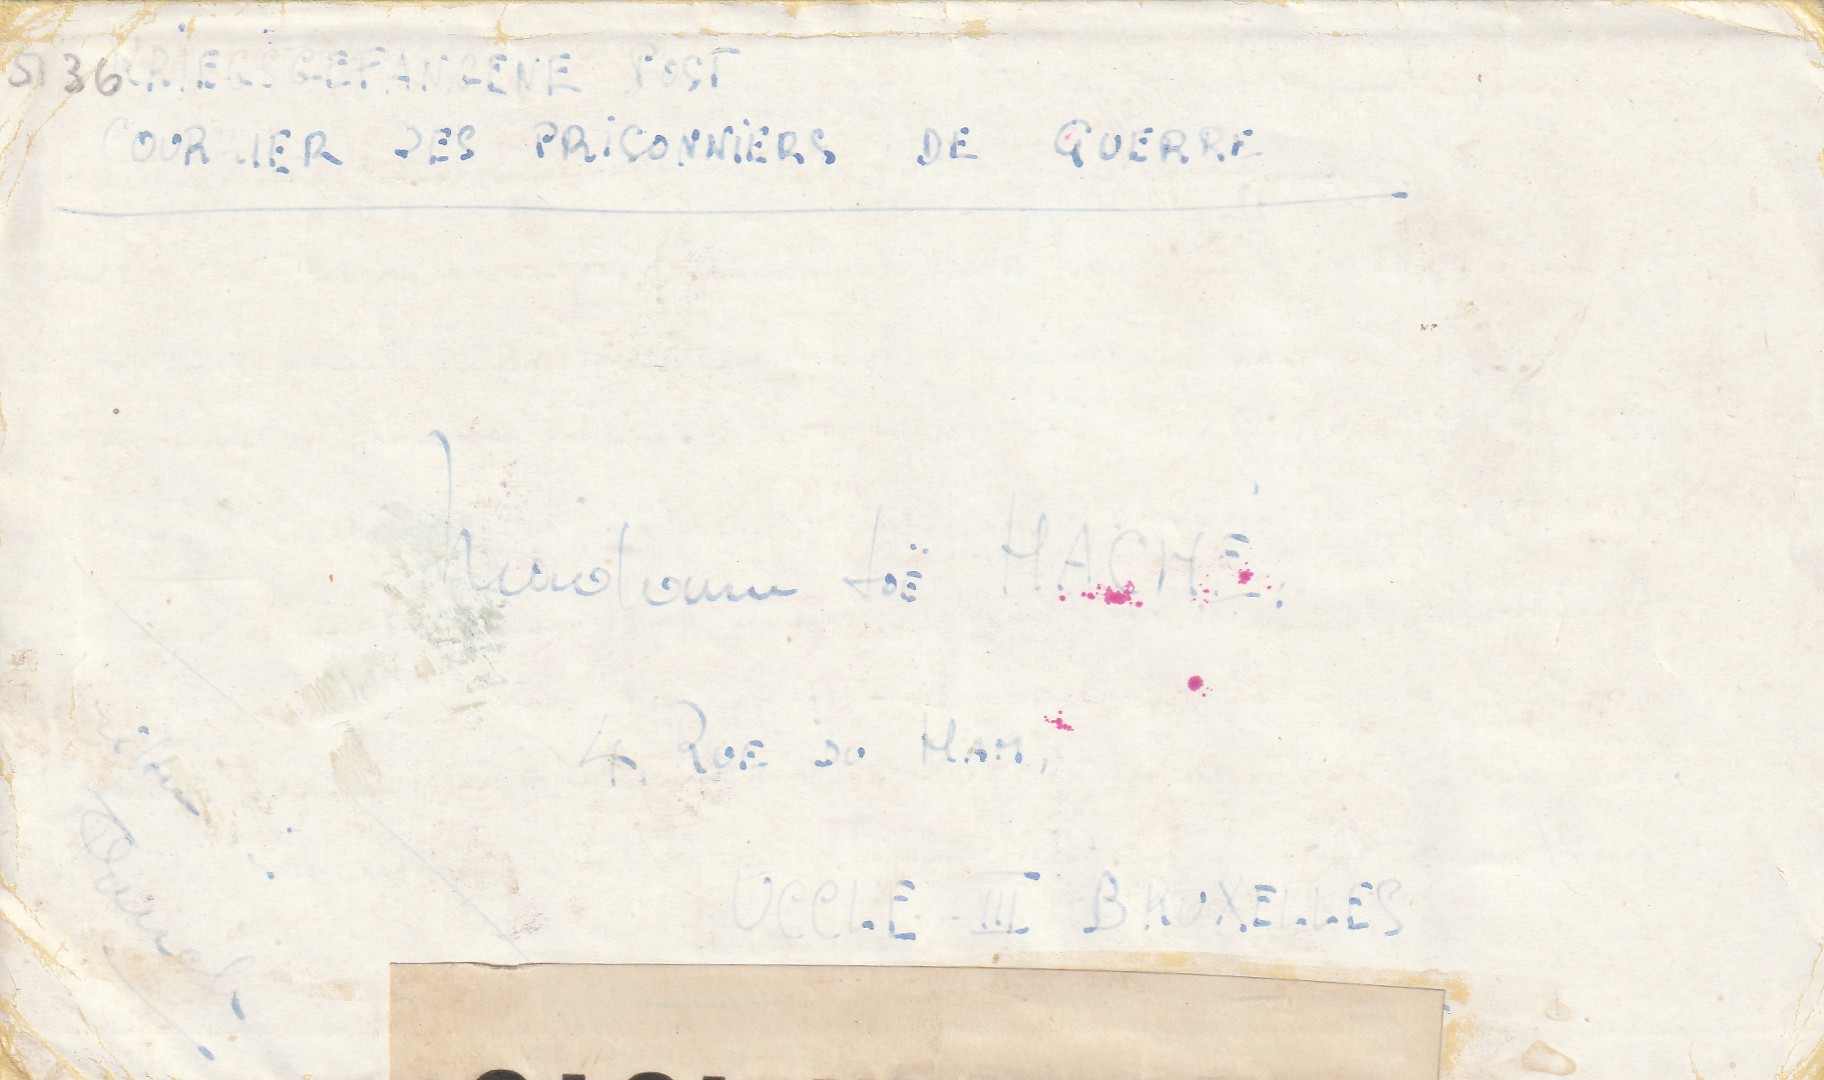 5136
KRIEGSGEFANGENE POST
COURRIER DES PRISONNIERS DE GUERRE
Madame Zoë HACHÉ.
4, RUE DU HAM,
UCCLE - III BRUXELLES